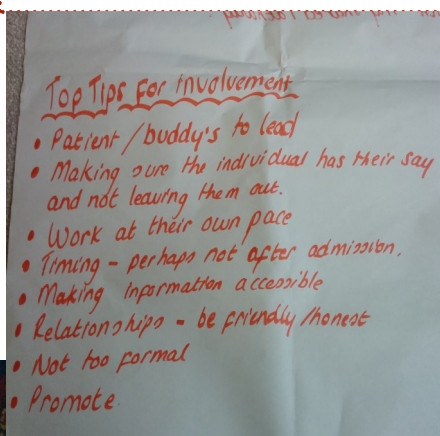 Top Tips for involvement
• Patient / buddy's to lead
• Making sure the individual has their say
and not leaving them out.
• Work at their own pace
• Timing - perhaps not after admission.
• Making information accessible
• Relationships - be friendly / honest
• Not too formal
• Promote.